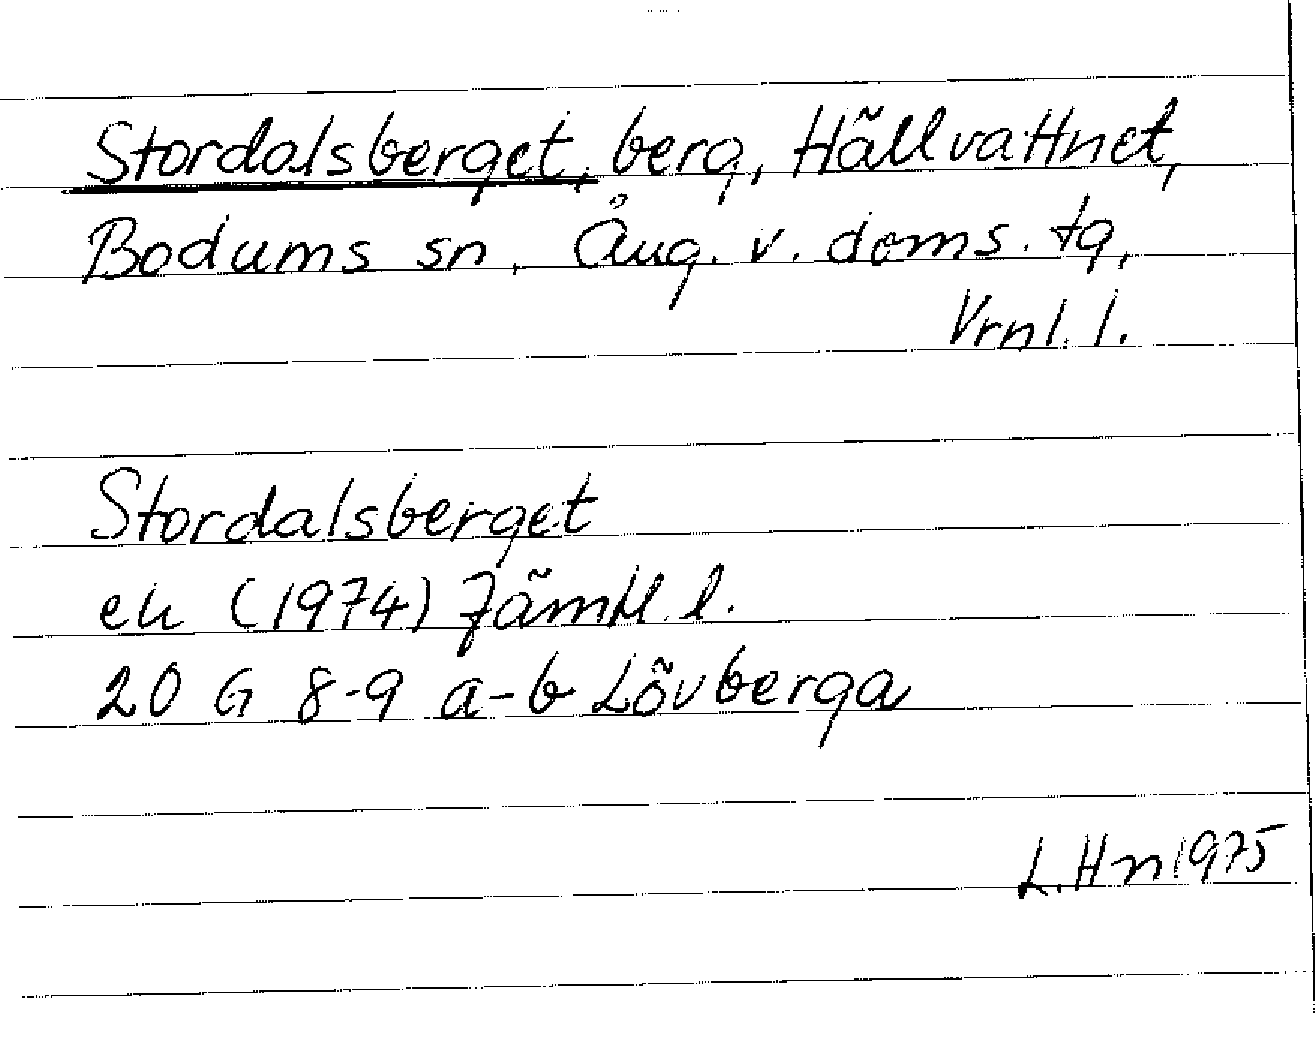 Stordalsberget, berg, Hällvattnet,
Bodums sn, Ång. v. doms. tg,
Vrnl. l.
Stordalsberget
ek (1974) Jämtl. l.
20 G 8-9 a-b Lövberga
L. Hn 1975